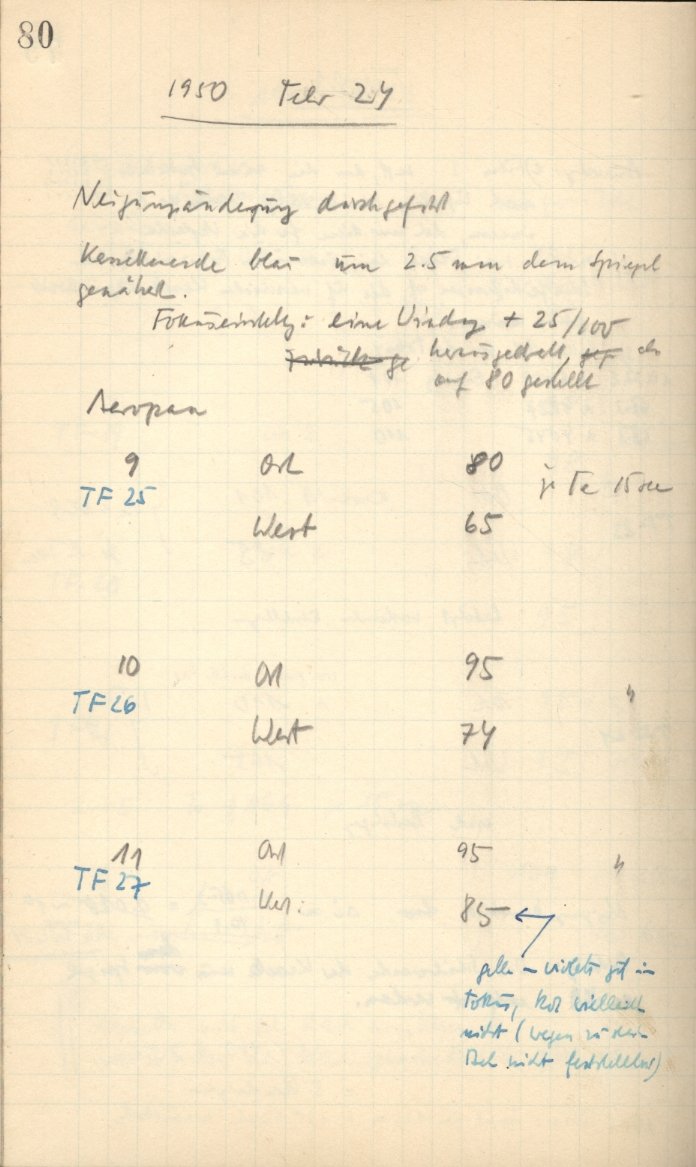 80
1950 Febr 24
Neigungsänderung durchgeführt
Kassettenende blau um 2.5 mm dem Spiegel
genähert.
Fokuseinstellg: eine Windung + 25/100
herausgedreht, also
auf 80 gestellt
Aeropan
9 Ost 80 je 15 sec
TF 25
West 65
10 Ost 95 "
TF 26
West 74
11 Ost 95 "
TF 27
West 85
gelb – violett gut im
Fokus, Rot vielleicht
nicht (wegen
nicht feststellbar)